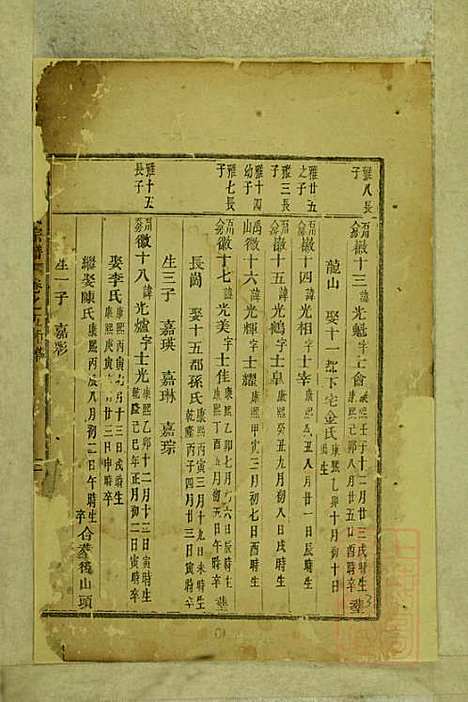 雅八長子
徽十三諱光魁字士會康熙壬子十二月廿三戌時生
康熙己卯八月廿五日酉時卒 葬
龍山 娶十一都下宅金氏康熙乙卯十月初十日
雅廿五之子
徽十四諱光相字士宰康熙 丑八月廿一日辰時生
雅三長子
徽十五諱光鶴字士皐康熙癸丑九月初八日戌時生
雅十四幼子
徽十六諱光輝字士耀康熙甲寅三月初七日酉時生
雅七長子
徽十七諱光美字士佳康熙乙卯七月 六日辰時生
康熙丁酉五月初五日午時卒 葬
長崗 娶十五都孫氏康熙丙寅三月十九日未時生
乾隆丙子四月廿三日寅時卒
生三子 嘉瑛 嘉琳 嘉琮
雅十五長子
徽十八諱光爐字士光康熙乙卯十二月十三日寅時生
乾隆己巳年正月初二日寅時卒
娶李氏康熙丙寅七月十三日戌時生
康熙 廿三日申時卒
繼娶陳氏康熙丙辰八月初二日午時生
卒 合葬後山頭
生一子 嘉彰
宗譜